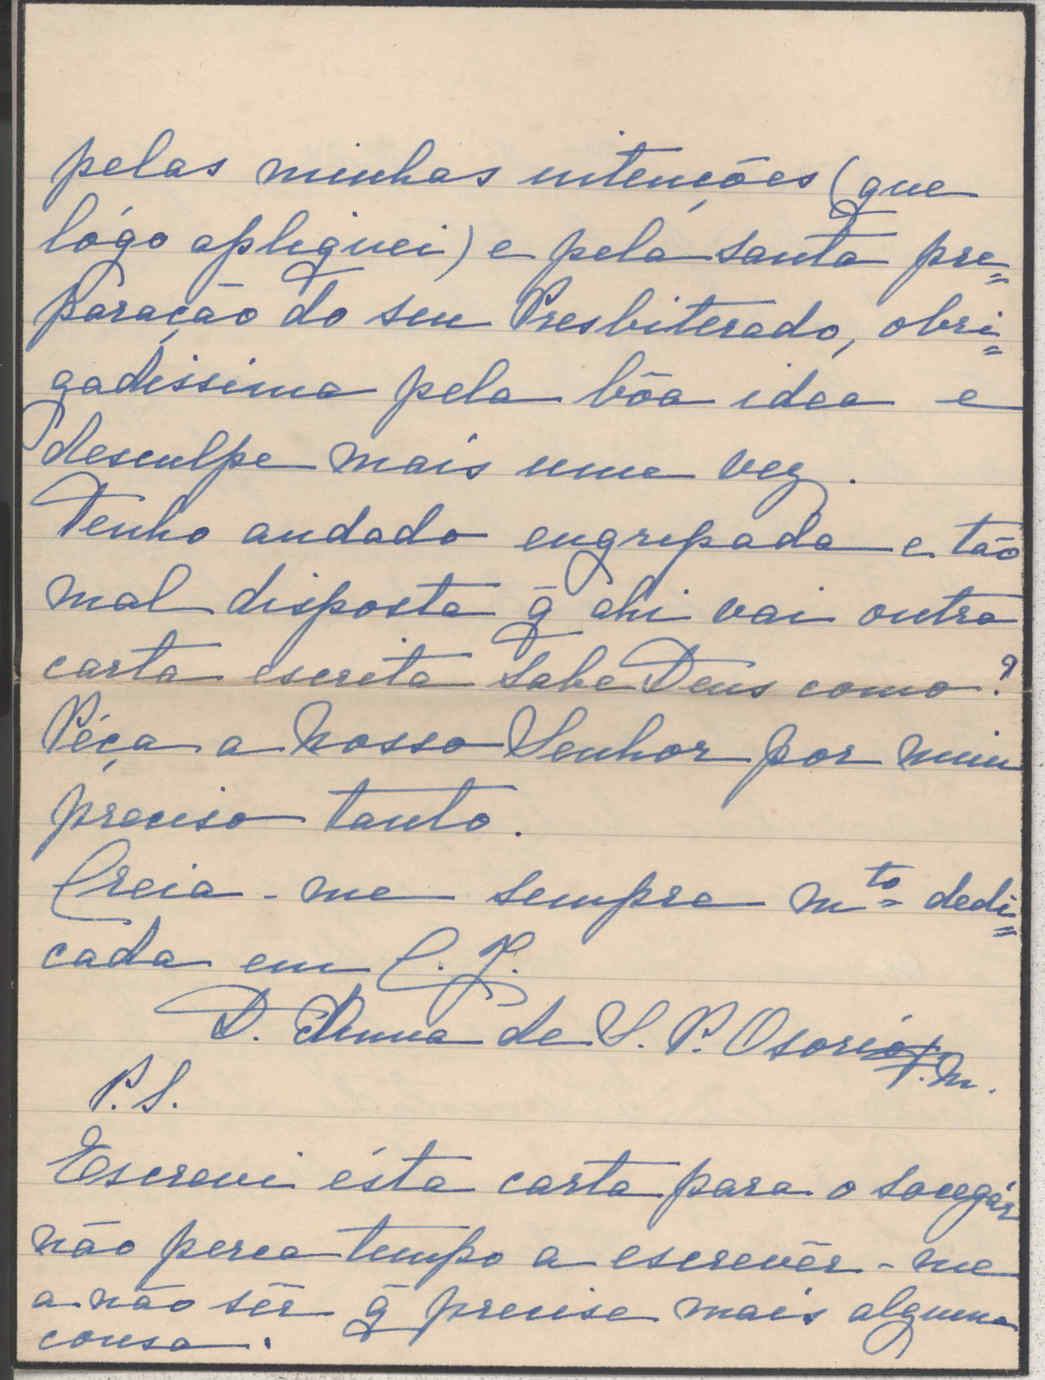 pelas minhas intenções (que
lógo apliquei) e pela santa pre=
paração do seu Presbiterado, obri=
gadissima pela bôa idea e
desculpe mais uma vez.
Tenho andado engripada e tão
mal disposta q̃ ahi vai outra
carta escrita Sabe Deus como?
Péça a Nosso Senhor por mim
preciso tanto.
Creia-me sempre m.to dedi=
cada em C. J.
D. Anna de S. P. Osorio
P.S.
Escrevi ésta carta para o socegár
não perca tempo a escrevêr-me
a não sêr q̃ precise mais alguma
cousa.